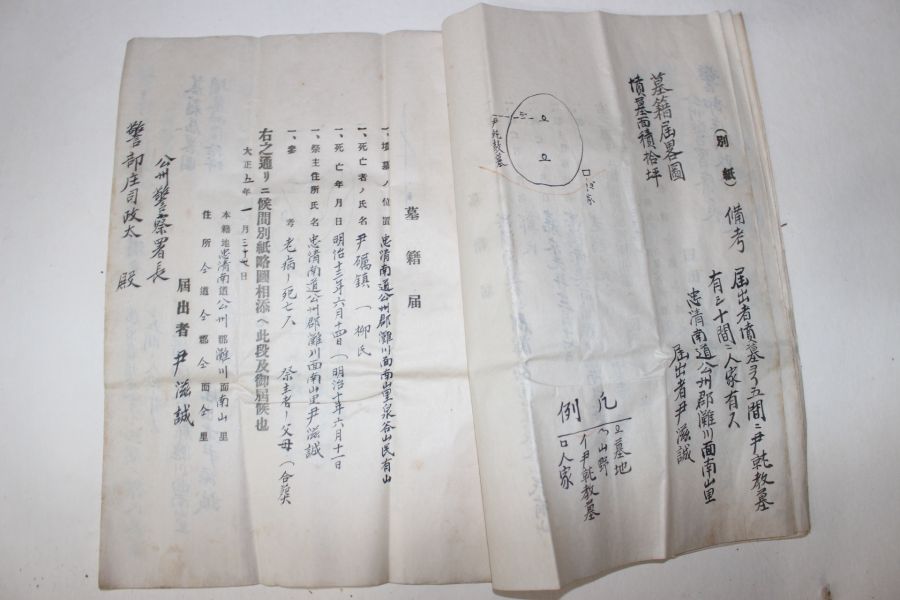 (別紙)
備考 届出者墳墓ヨリ五間ニ尹乾教墓
有ニ十間ニ人家有ス
忠清南道公州郡灘川面南山里
届出者尹滋誠
墓籍届畧圖
墳墓面積拾坪
尹乾教墓
凡例
墓地
山野
尹乾教墓
口人家
墓籍届
一、墳墓ノ位置 忠清南道公州郡灘川面南山里泉谷山民有山
一、死亡者ノ氏名 尹礪鎮 (柳氏
一、死亡年月日 明治十三年六月十四日(明治十年六月十一日
一、祭主住所氏名 忠清南道公州郡灘川面南山里尹滋誠
一、參考 老病ノ死亡人 祭主者ノ父母(合葬
右之通リニ候間別紙略圖相添ヘ此段及御届候也
大正五年一月三十七日
本籍地忠清南道公州郡灘川面南山里
住所仝道仝郡仝面仝里
届出者 尹滋誠
公州警察署長
警部庄司政太殿